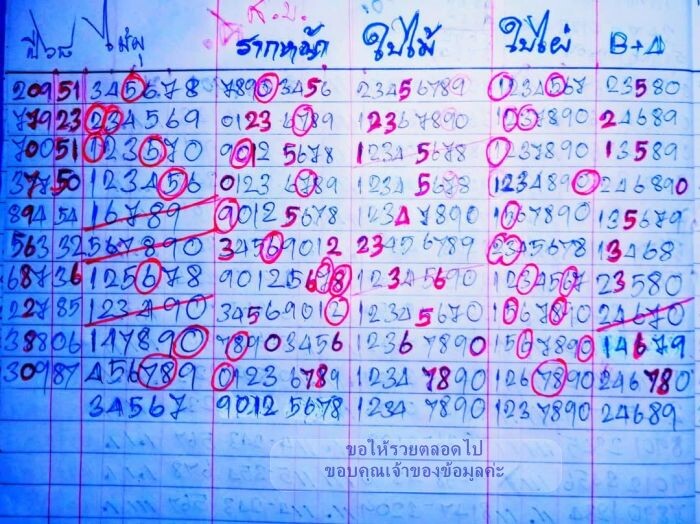 ส.บ.
ปี68 ไม้ผุ รากหญ้า ใบไม้ ใบไผ่ B+A
209 51 345678 789 3456 23456789 1234567 23580
779 23 234569 0123 6789 123 67890 1237890 24689
700 51 123570 9012 5678 12345678 1237890 13589
377 50 123456 0123 6789 12345 789 12348900 246890
894 54 16789 9012 5678 1234 7890 1567890 135679
563 32 567890 34569012 2345 6789 2345678 13468
687 36 125678 90125698 12345690 1234567 23580
227 85 123490 34569012 12345670 1567890 24670
388 06 147890 78903456 1236 7890 1567890 14679
309 87 456789 0123 6789 1234 7890 1267890 246780
34567 9012 5678 1234 7890 1237890 24689
ขอให้รวยตลอดไป
ขอบคุณเจ้าของข้อมูลค่ะ